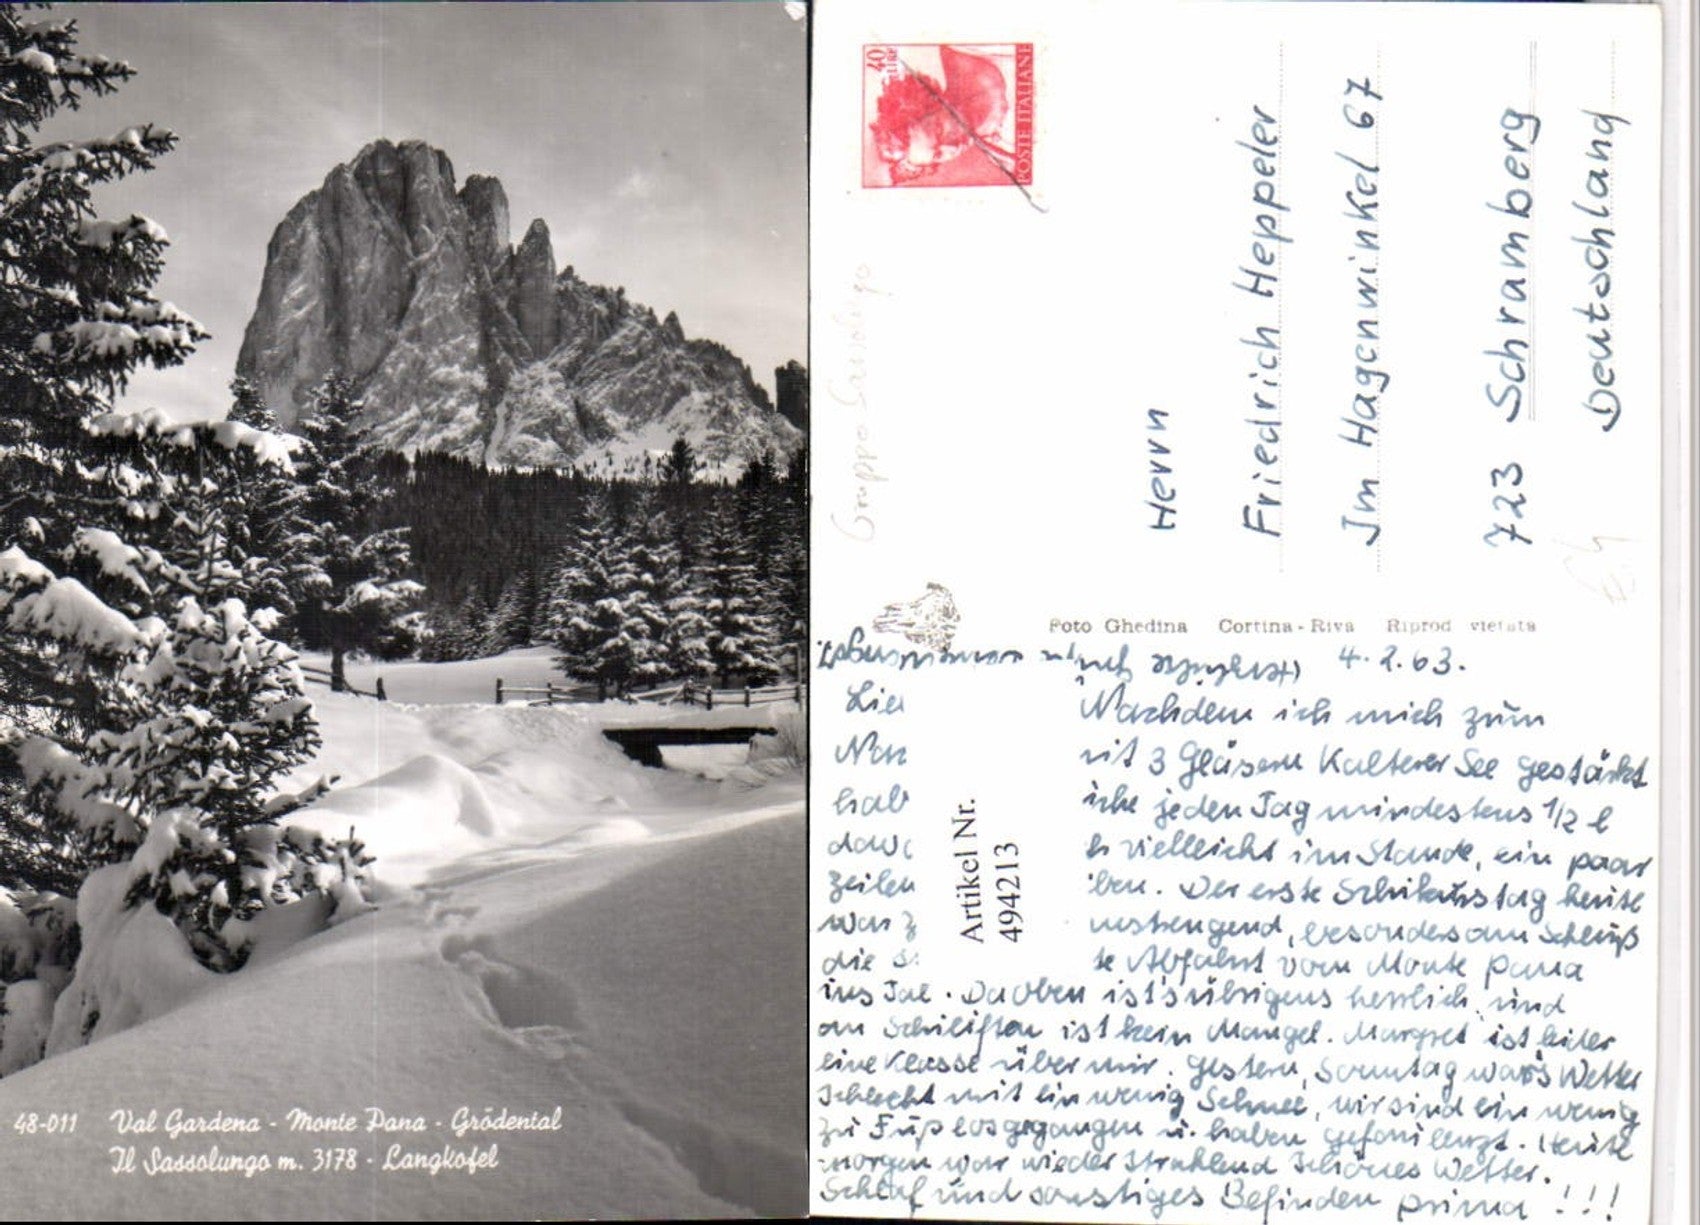 48-011 Val Gardena - Monte Pana - Grödental
Il Sassolungo m. 3178 - Langkofel
40 LIRE
POSTE ITALIANE
Gruppo Sassolungo
Herrn
Friedrich Heppeler
Im Hagenwinkel 67
723 Schramberg
Deutschland
Foto Ghedina Cortina - Riva Riprod vietata
4.2.63.
Lie Nachdem ich mich zum
Nac it 3 Gläsern Kalterer See gestärkt
hab jeden Tag mindestens 1/2 l
davo vielleicht im Stande, ein paar
Zeilen ben. Der erste Schikurstag heute
war z nstrengend, besonders am Schluß
die s te Abfahrt vom Monte Pana
ins Tal. Da oben ist's übrigens herrlich und
an Schiliften ist kein Mangel. Margret ist leider
eine Klasse über mir. Gestern, Sonntag war's Wetter
schlecht mit ein wenig Schnee, wir sind ein wenig
zu Fuß losgegangen u. haben gefaulenzt. Heute
morgen war wieder strahlend schönes Wetter.
Schlaf und sonstiges Befinden prima !!!
Artikel Nr.
494213